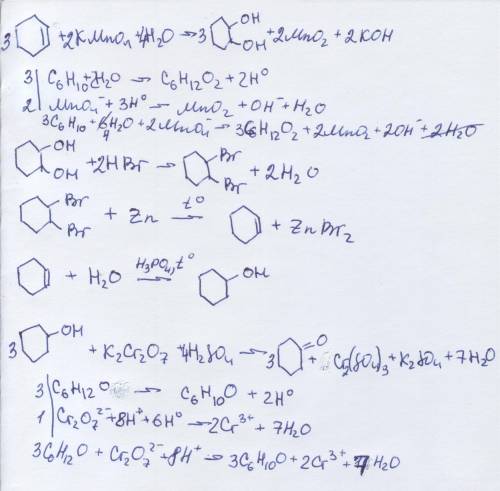 3 + 2KMnO4 + 4H2O → 3 OH OH + 2MnO2 + 2KOH
3 | C6H10 + 2H2O → C6H12O2 + 2H°
2 | MnO4⁻ + 3H° → MnO2 + OH⁻ + H2O
3C6H10 + 4H2O + 2MnO4⁻ → 3C6H12O2 + 2MnO2 + 2OH⁻
OH OH + 2HBr → Br Br + 2H2O
Br Br + Zn t° → + ZnBr2
+ H2O H3PO4, t° → OH
3 OH + K2Cr2O7 + 4H2SO4 → 3 =O + Cr2(SO4)3 + K2SO4 + 7H2O
3 | C6H12O → C6H10O + 2H°
1 | Cr2O7²⁻ + 8H⁺ + 6H° → 2Cr³⁺ + 7H2O
3C6H12O + Cr2O7²⁻ + 8H⁺ → 3C6H10O + 2Cr³⁺ + 7H2O